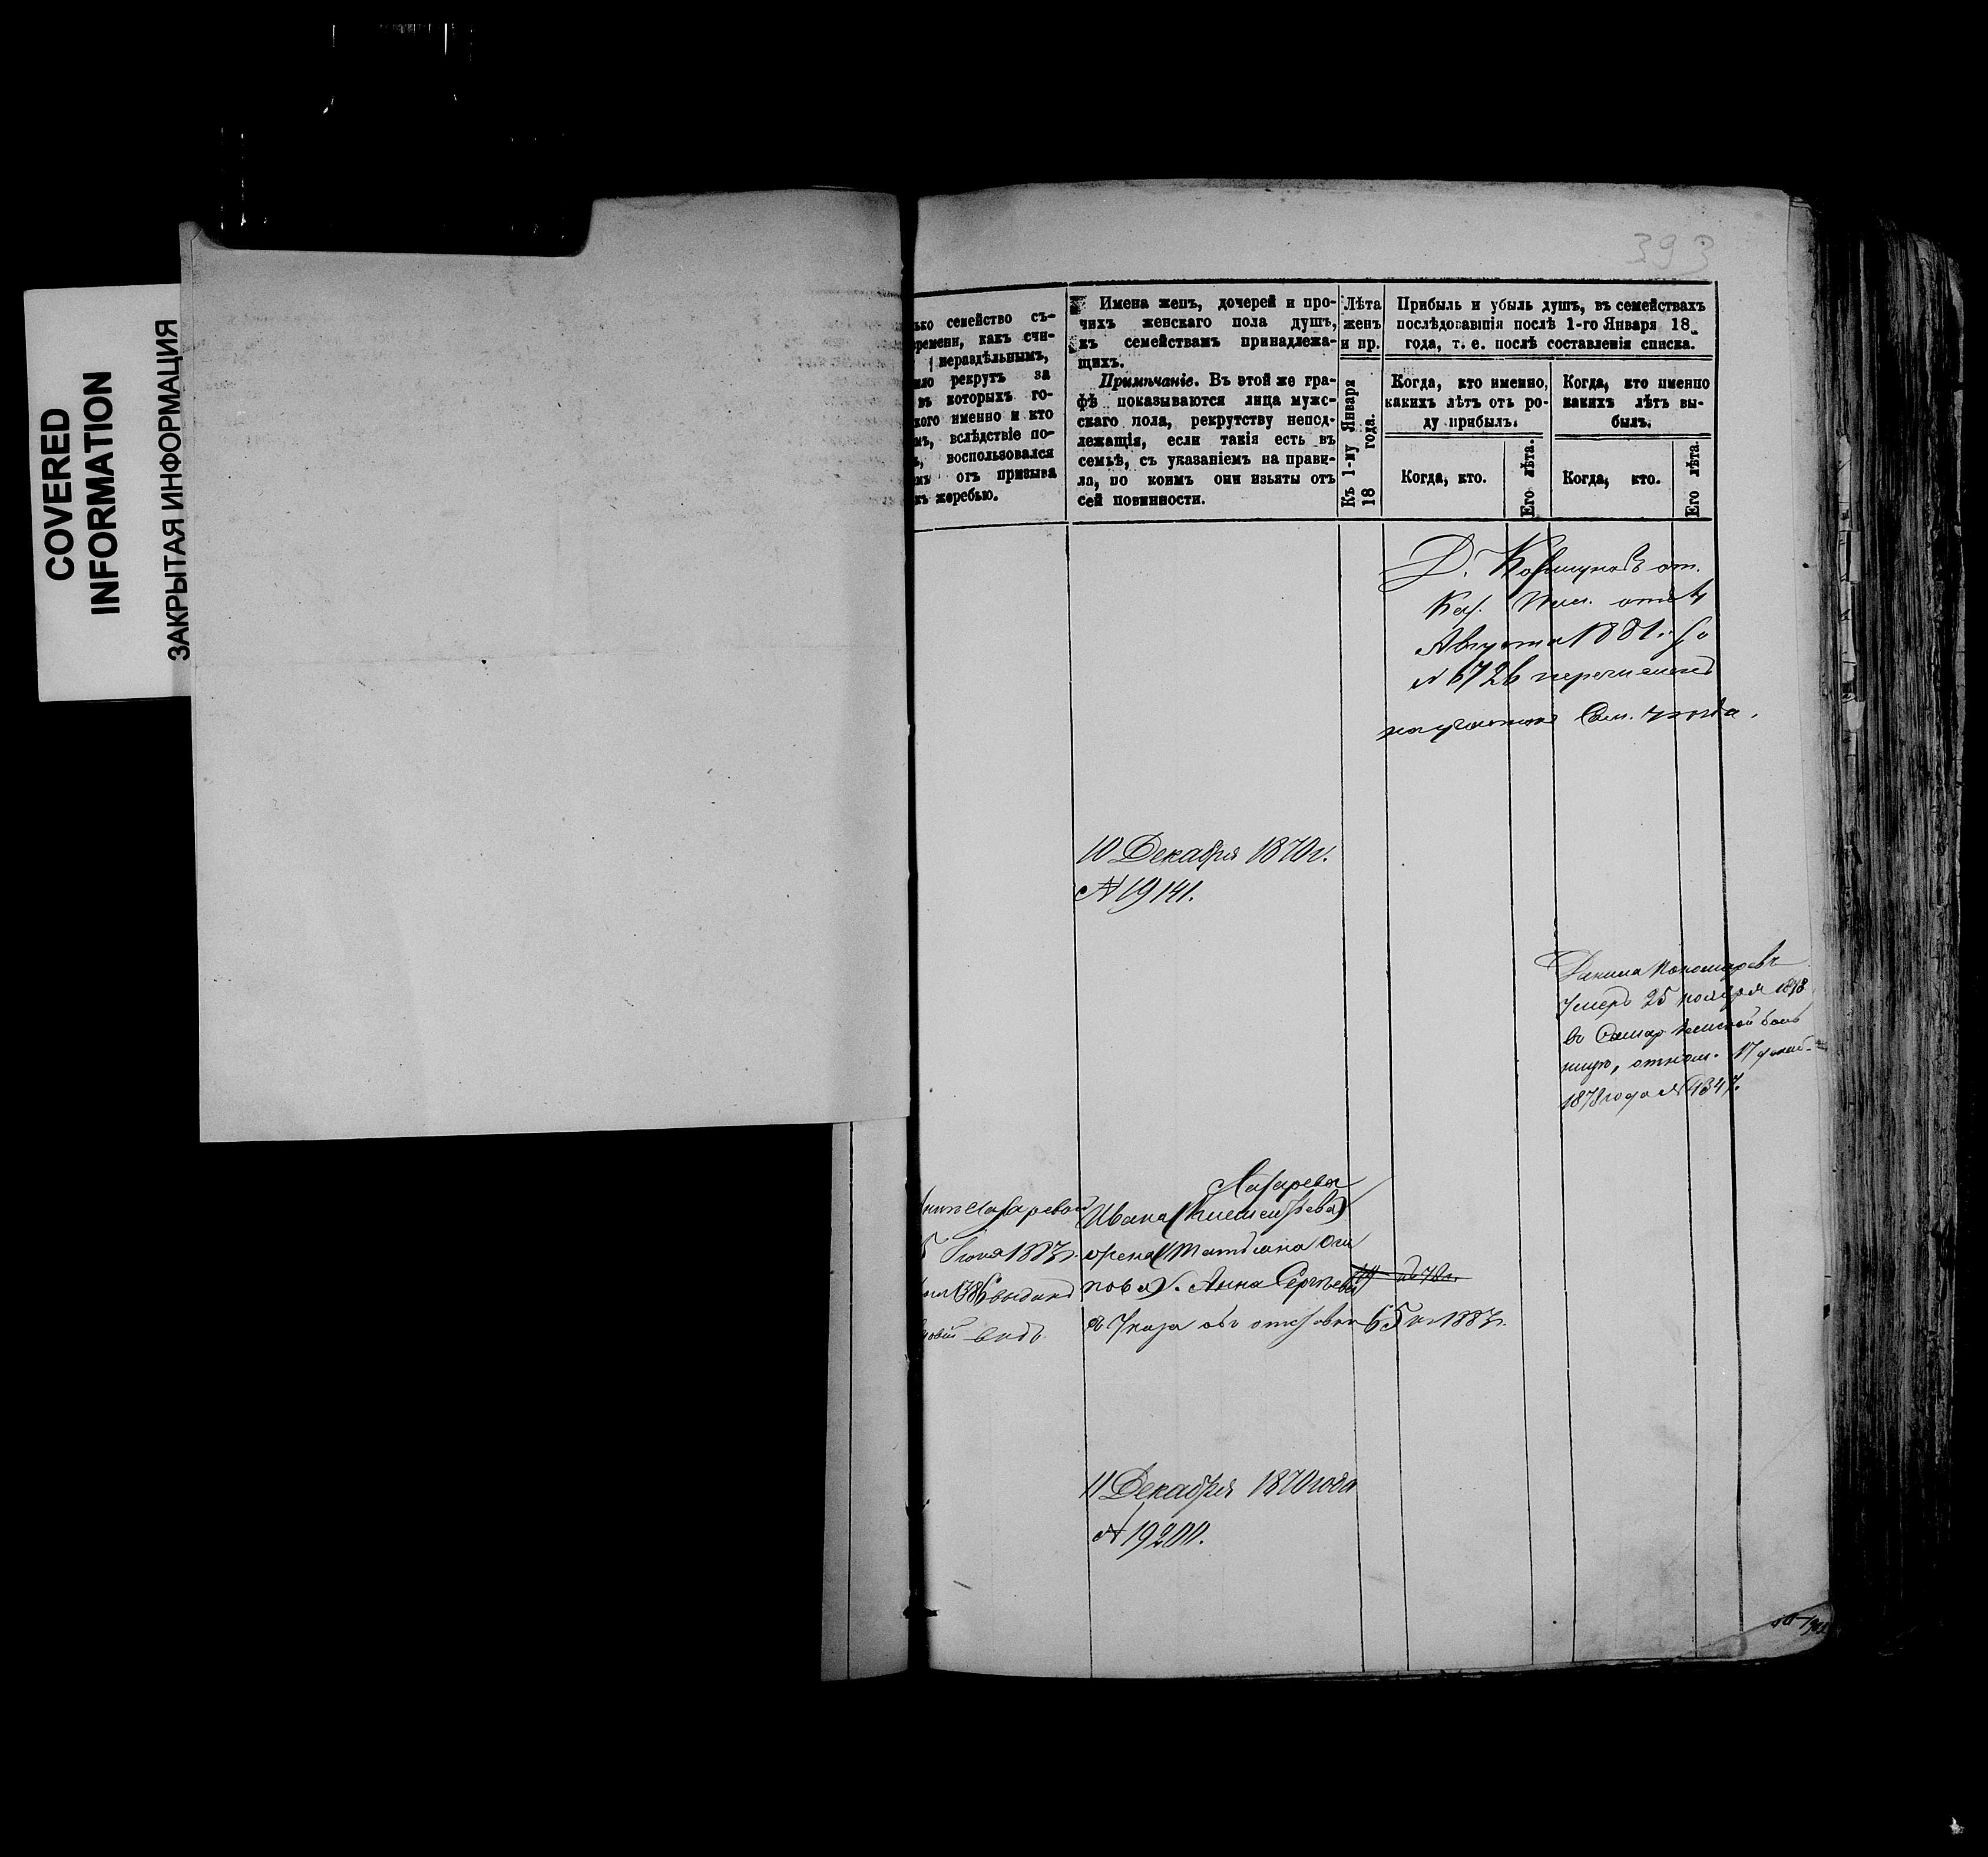 COVERED
INFORMATION
ЗАКРЫТАЯ ИНФОРМАЦИЯ
393
ько семейство съ-
ремени, какъ счи-
нераздѣльнымъ,
ло рекрутъ за
въ которыхъ го-
кого именно и кто
мъ, вслѣдствіе по-
ъ, воспользовался
мъ отъ призыва
къ жеребью.
Имена женъ, дочерей и про-
чихъ женскаго пола душъ,
къ семействамъ принадлежа-
щихъ.
Примѣчаніе. Въ этой же гра-
фѣ показываются лица муж-
скаго пола, рекрутству непод-
лежащія, если такія есть въ
семьѣ, съ указаніемъ на прави-
ла, по коимъ они изьяты отъ
сей повинности.
Лѣта
женъ
и пр.
Къ 1-му Января
18 года.
Прибыль и убыль душъ, въ семействахъ
послѣдовавшія послѣ 1-го Января 18
года, т. е. послѣ составленія списка.
Когда, кто именно,
какихъ лѣтъ отъ ро-
ду прибылъ.
Когда, кто именно
какихъ лѣтъ вы-
былъ.
Когда, кто.
Его лѣта.
Когда, кто.
Его лѣта
Д. Коршуновъ от.
Каз. Пал. отъ 4
Августа 1881 г. за
№ 6726 перечисленъ
Сам. уѣзда.
10 Декабря 1870 г.
№ 19141.
Данила Пономаревъ
умеръ 25 ноября 1878
въ Самар земской боль
ницѣ, отнош. 17 декаб
1878 года № 4347.
Лазарева
Лазаревой
Ивана
Іюня 1883 г.
Татьяна Оси
пова). Анна Сергѣева
выданъ
видъ
Указа объ отставкѣ 65 въ 1883 г.
11 Декабря 1870 года
№ 19200.